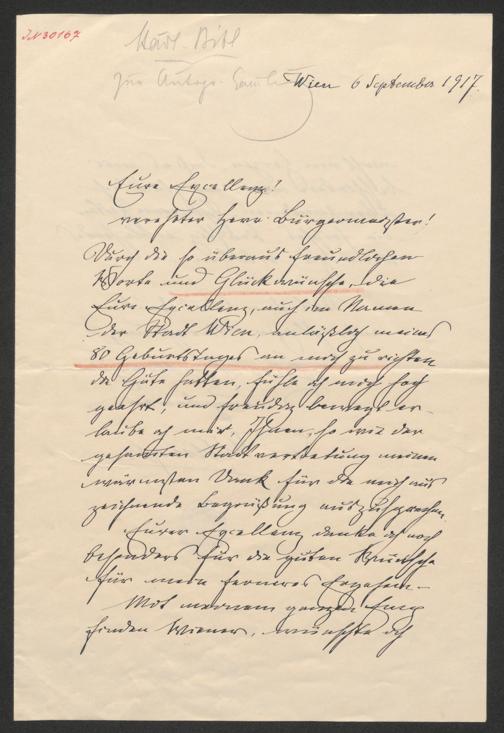 JN 30167
Karl Bibl
zur Autogr. Samml.
Wien 6 September 1917.
Eure Excellenz!
verehrter Herr Bürgermeister!
Durch die so überaus freundlichen
Worte und Glückwünsche, die
Eure Excellenz, auch im Namen
der Stadt Wien, anläßlich meines
80 Geburtstages an mich zu richten
die Güte hatten, fühle ich mich hoch
geehrt, und freudig bewegt er-
laube ich mir, Ihnen, so wie der
gesamten Stadtvertretung meinen
wärmsten Dank für die mich aus
zeichnende Begrüßung auszusprechen.
Eurer Excellenz danke ich noch
besonders für die guten Wünsche
für mein ferneres Ergehen.-
Mit meinem ganzen Emp
finden Wiener, wünschte ich